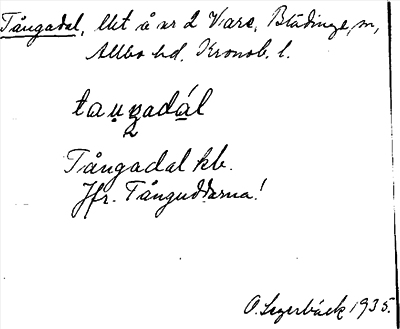 Tångadal, lht å nr 2 Vare, Blädinge sn,
Allbo hd. Kronob. l.
taŋgadál
Tångadal kb.
Jfr. Tånguddarna!
O. Lagerbäck 1935.